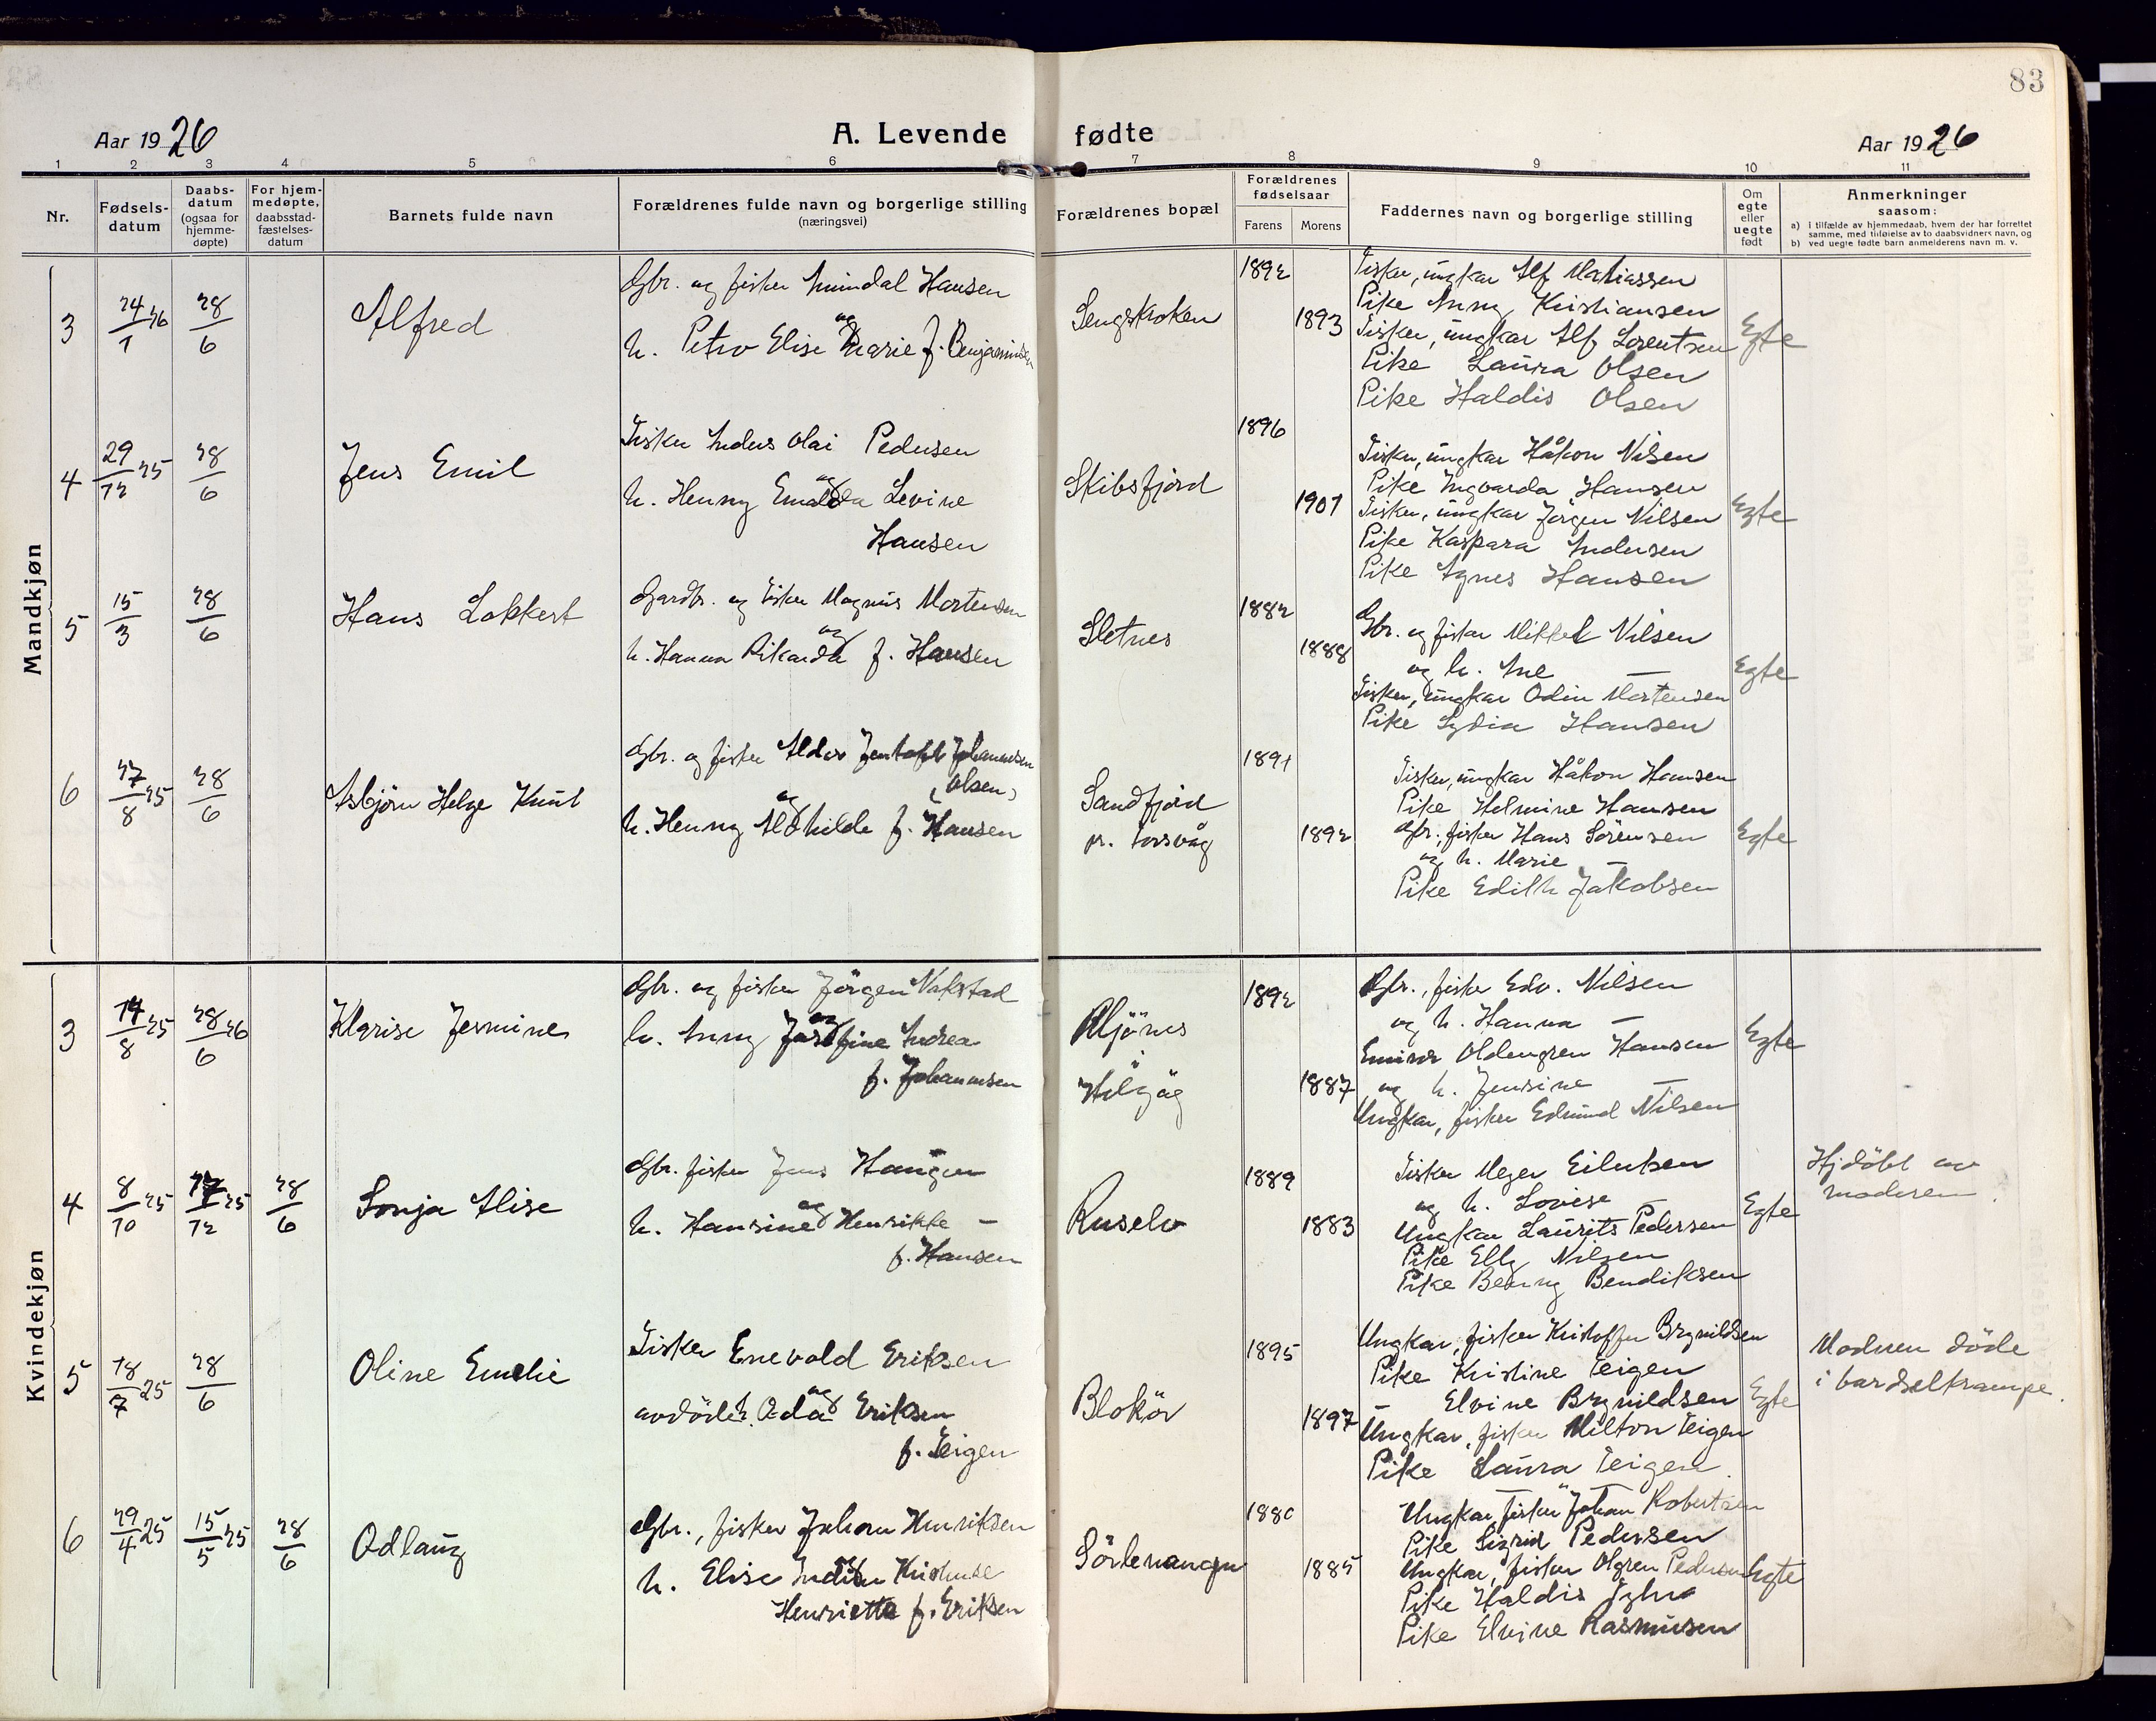 83
Aar 1926
A. Levende fødte
Aar 1926
1 2 3 4 5 6 7 8 9 10 11
Nr.
Fødsels-
datum
Daabs-
datum
(ogsaa for
hjemme-
døpte)
For hjem-
medøpte,
daabsstad-
fæstelses-
datum
Barnets fulde navn
Forældrenes fulde navn og borgerlige stilling
(næringsvei)
Forældrenes bopæl
Forældrenes
fødselsaar
Farens Morens
Faddernes navn og borgerlige stilling
Om
egte
eller
uegte
født
Anmerkninger
saasom:
a) i tilfælde av hjemmedaab, hvem der har forrettet
samme, med tilføielse av to daabsvidners navn, og
b) ved uegte fødte barn anmelderens navn m. v.
Mandkjøn
3
24/1 26
28/6
Alfred
Gbr. og fisker Amindal Hansen
og
h. Petra Elise Marie f. Benjaminsen
Sengskroken
1892
1893
Fisker, ungkar Alf Mathiassen
Pike Anny Kristiansen
Fisker, ungkar Alf Lorentsen
Pike Laura Olsen
Pike Haldis Olsen
Egte
4
29/12 25
28/6
Jens Emil
Fisker Anders Olai Pedersen
og
h. Henny Levine
Hansen
Skibsfjord
1896
1901
Fisker, ungkar Håkon Nilsen
Pike Ingvarda Hansen
Fisker, ungkar Jörgen Nilsen
Pike Kaspara Andersen
Pike Agnes Hansen
Egte
5
15/3
28/6
Hans Lokkert
Gardbr. og fisker Magnus Mortensen
og
h. Hanna Rikarda f. Hansen
Sletnes
1882
1888
Gbr. og fisker Mikkel Nilsen
og h. Ane —
Fisker, ungkar Odin Mortensen
Pike Lydia Hansen
Egte
6
27/8 25
28/6
Asbjørn Helge Knut
Gbr. og fisker Aldor Jentoft Johannesen
(Olsen)
og
h. Henny Aldhilde f. Hansen
Sandfjord
pr. Torsvåg
1891
1892
Fisker, ungkar Håkon Hansen
Pike Helmine Hansen
Gbr., fisker Hans Sörensen
og h. Marie —
Pike Edith Jakobsen
Egte
Kvindekjøn
3
14/8 25
28/6 26
Klarise Jermine
Gbr. og fisker Jörgen Nakstad
og
h. Anny Josefine Andrea
f. Johannesen
Mjönes
1892
1887
Gbr., fisker Edv. Nilsen
og h. Hanna —
Oldengren Hansen
og h. Jensine —
Ungkar, fisker Edmund Nilsen
Egte
4
8/10 25
/12 25
28/6
Sonja Alise
Gbr. fisker Jens Haugen
og
h. Hansine Henrikke —
f. Hansen
Ruselv
1889
1883
Fisker Meyer Eilertsen
og h. Lovise —
Ungkar Laurits Pedersen
Pike Elly Nilsen
Pike Benny Bendiksen
Egte
Hjdöbt av
moderen.
5
18/7 25
28/6
Oline Emelie
Fisker Enevold Eriksen
og
avdöde h. Oda Eriksen
f. Teigen
Blokör
1895
1897
Ungkar, fisker Kristoffer Brynildsen
Pike Kristine Teigen
— Elvine Brynildsen
Ungkar, fisker Milton Teigen
Pike Laura Teigen.
Egte
Moderen döde
i barselkrampe.
6
29/4 25
15/5 25
28/6
Odlaug
Gbr., fisker Johan Henriksen
og
h. Elise Kristine
Henriette f. Eriksen
Sörlenangen
1880
1885
Ungkar, fisker Johan Robertsen
Pike Sigrid Pedersen
Ungkar, fisker Olgren Pedersen
Pike Haldis
Pike Elvine Rasmussen
Egte